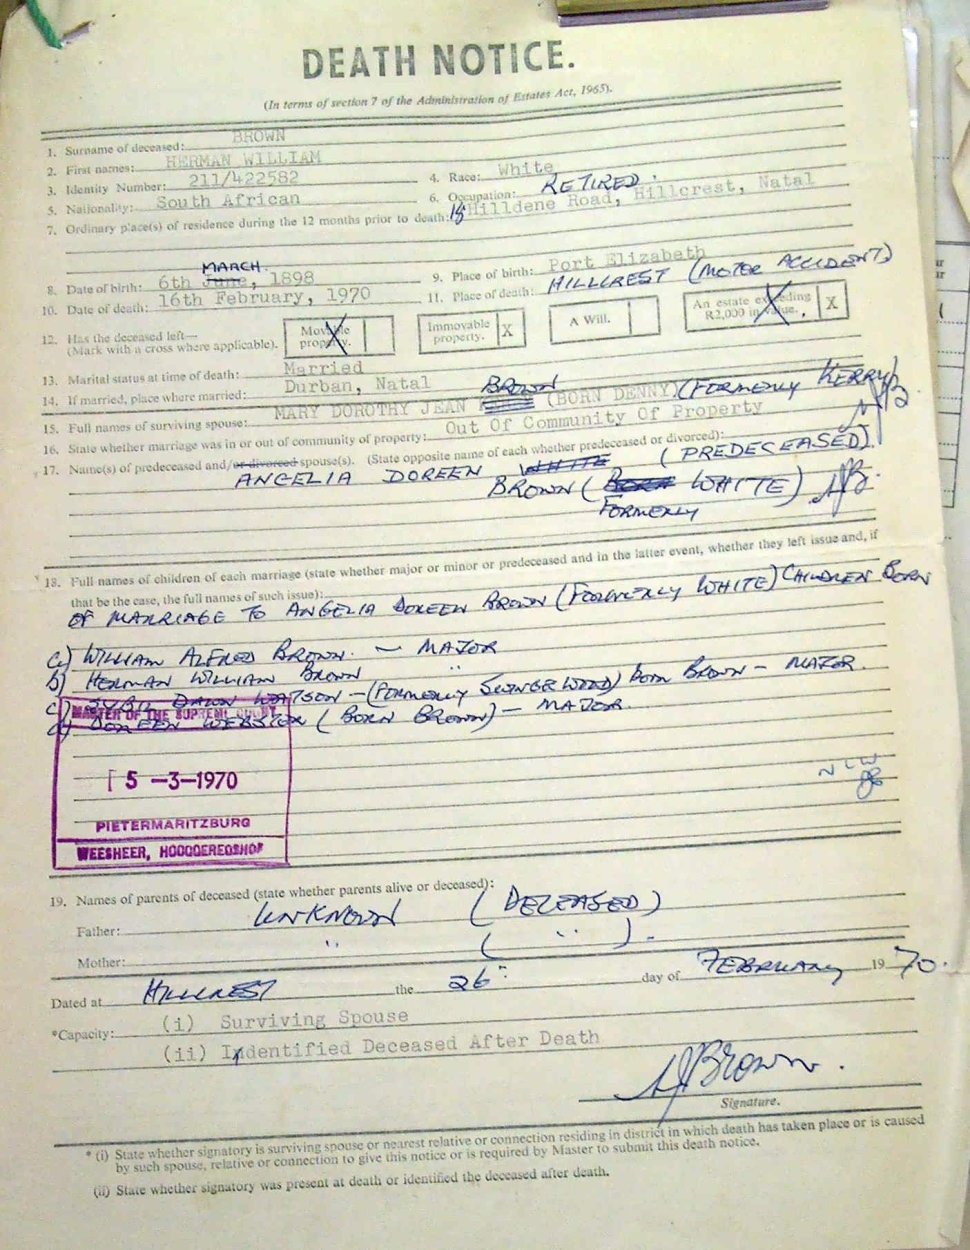 DEATH NOTICE.
(In terms of section 7 of the Administration of Estates Act, 1965).
1. Surname of deceased: BROWN
2. First names: HERMAN WILLIAM
3. Identity Number: 211/422582 4. Race: White
5. Nationality: South African 6. Occupation: RETIRED.
7. Ordinary place(s) of residence during the 12 months prior to death: Hilldene Road, Hillcrest, Natal
MARCH.
8. Date of birth: 6th June, 1898 9. Place of birth: Port Elizabeth
10. Date of death: 16th February, 1970 11. Place of death: HILLCREST (MOTOR ACCIDENT)
12. Has the deceased left— Movable property. Immovable property. X A Will. An estate exceeding R2,000 in value. X
(Mark with a cross where applicable).
13. Marital status at time of death: Married
14. If married, place where married: Durban, Natal
BROWN
15. Full names of surviving spouse: MARY DOROTHY JEAN (BORN DENNY) (FORMERLY KERRY)
16. State whether marriage was in or out of community of property: Out Of Community Of Property
17. Name(s) of predeceased and/or divorced spouse(s). (State opposite name of each whether predeceased or divorced):
ANGELIA DOREEN WHITE (PREDECEASED)
BROWN (BORN WHITE)
FORMERLY
18. Full names of children of each marriage (state whether major or minor or predeceased and in the latter event, whether they left issue and, if
that be the case, the full names of such issue):
OF MARRIAGE TO ANGELIA DOREEN BROWN (FORMERLY WHITE) CHILDREN BORN
a) WILLIAM ALFRED BROWN. — MAJOR
b) HERMAN WILLIAM BROWN "
c) SYBIL DAWN WATSON — (FORMERLY ) BORN BROWN — MAJOR.
d) DOREEN WEBSTER (BORN BROWN) — MAJOR.
MASTER OF THE SUPREME COURT
5 -3-1970
PIETERMARITZBURG
WEESHEER, HOOGGEREGSHOF
19. Names of parents of deceased (state whether parents alive or deceased):
Father: UNKNOWN (DECEASED)
Mother: " ( " ).
Dated at HILLCREST the 26 day of FEBRUARY 1970.
*Capacity: (i) Surviving Spouse
(ii) Indentified Deceased After Death
Brown.
Signature.
* (i) State whether signatory is surviving spouse or nearest relative or connection residing in district in which death has taken place or is caused
by such spouse, relative or connection to give this notice or is required by Master to submit this death notice.
(ii) State whether signatory was present at death or identified the deceased after death.